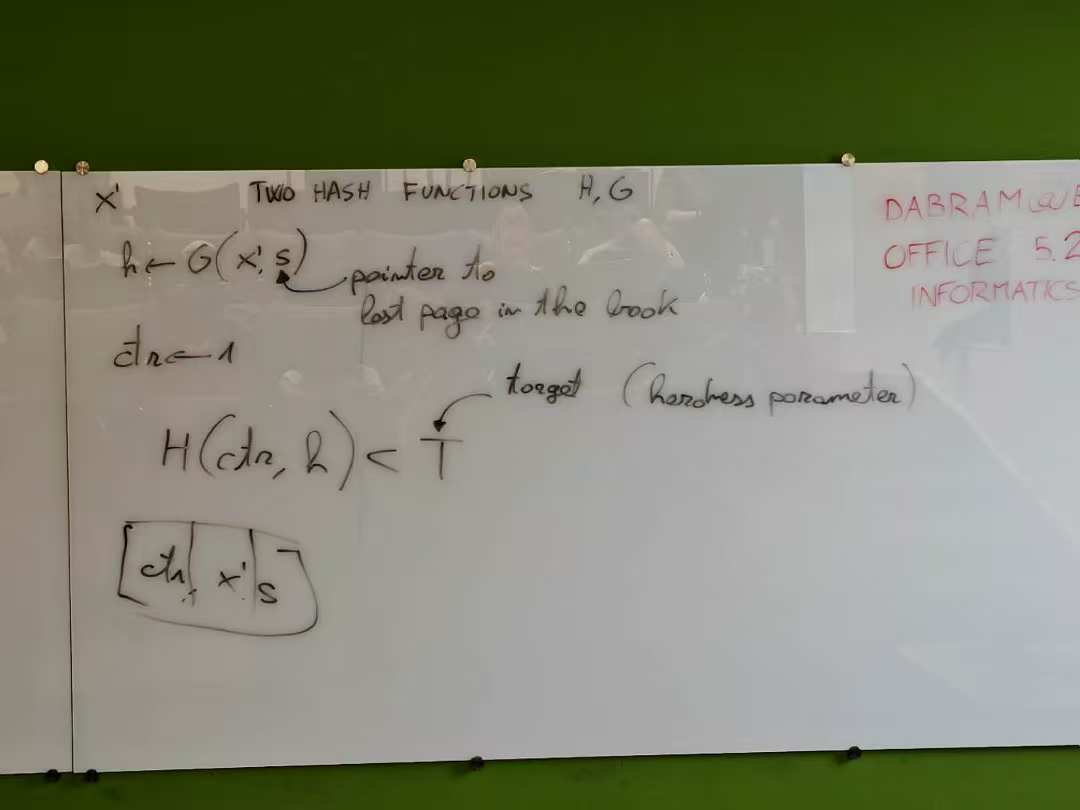 x' TWO HASH FUNCTIONS H, G
h ← G(x', s)
pointer to
last page in the book
ctr ← 1
target (hardness parameter)
H(ctr, h) < T
[ctr, x', s]
DABRAM@E
OFFICE 5.2
INFORMATICS